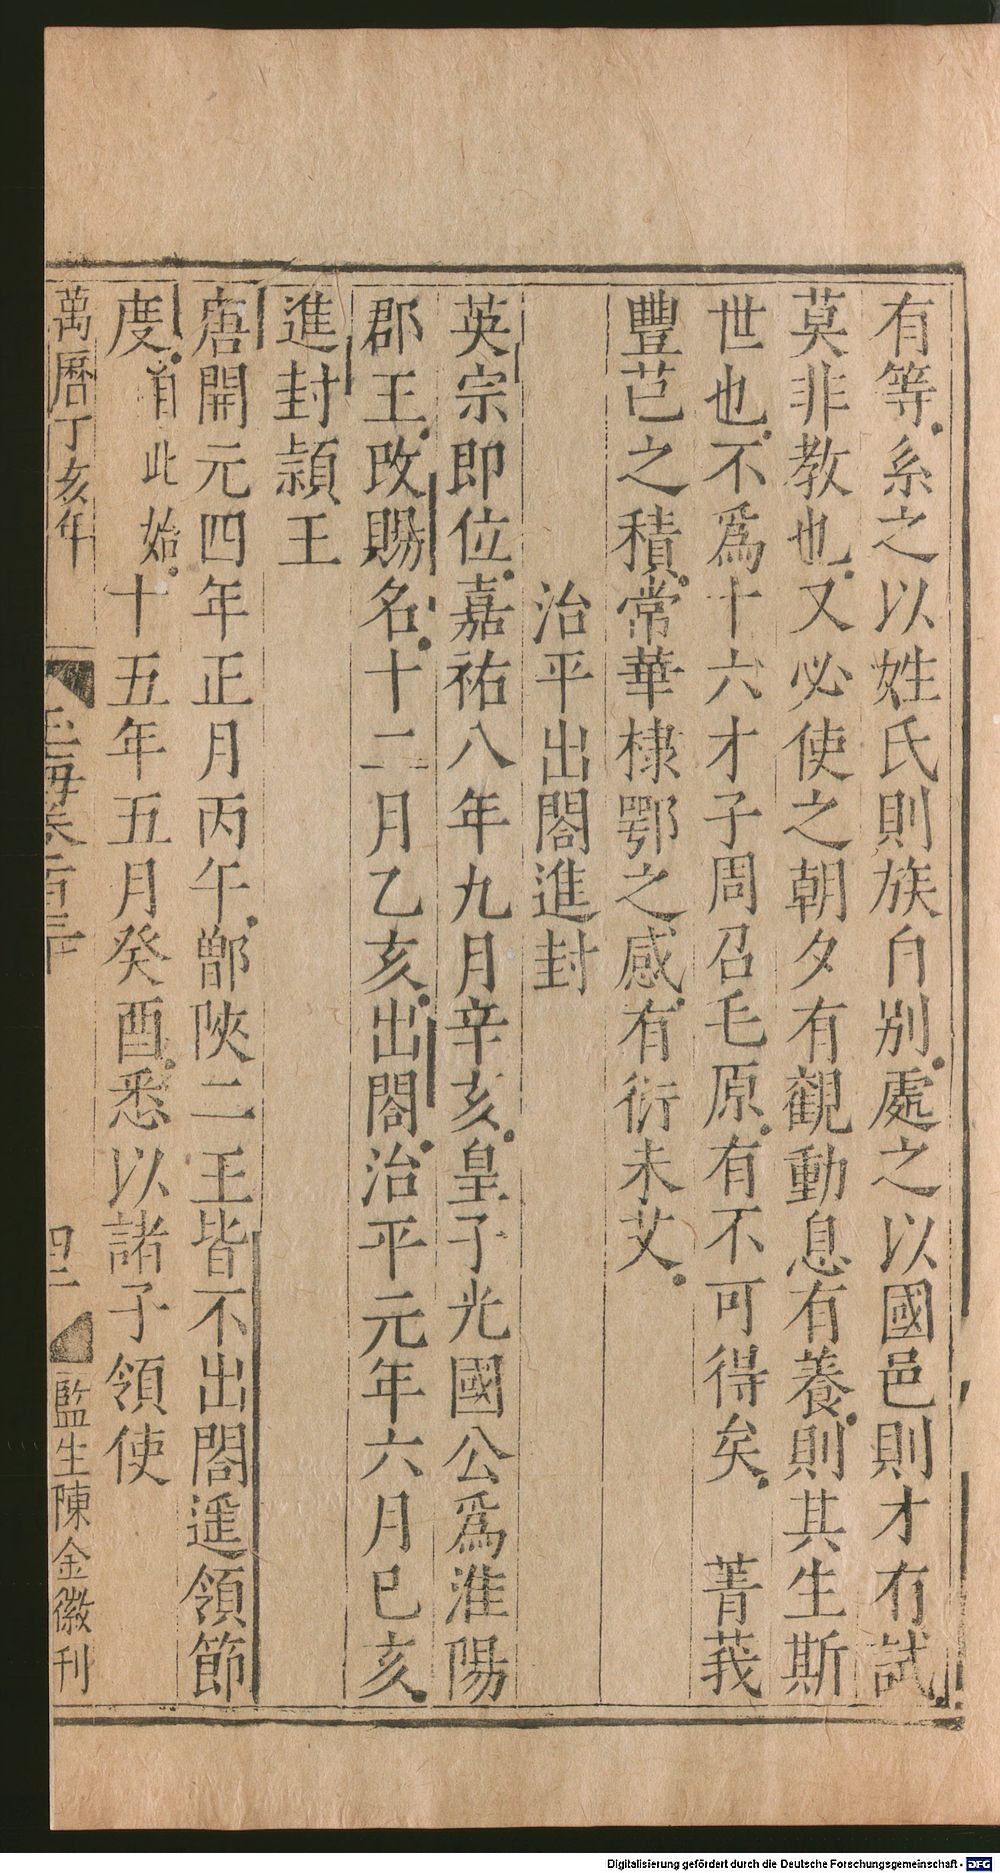 有等系之以姓氏則族自別處之以國邑則才有試
莫非教也又必使之朝夕有觀動息有養則其生斯
世也不爲十六才子周召毛原有不可得矣　菁莪
豐芑之積常華棣鄂之感有衍未艾
治平出閤進封
英宗即位嘉祐八年九月辛亥皇子光國公爲淮陽
郡王改賜名十二月乙亥出閤治平元年六月已亥
進封潁王
唐開元四年正月丙午鄫陜二王皆不出閤遥領節
度自此始十五年五月癸酉悉以諸子領使
萬曆丁亥年
玉海卷百三十
四二
監生陳金徽刊
Digitalisierung gefördert durch die Deutsche Forschungsgemeinschaft - DFG